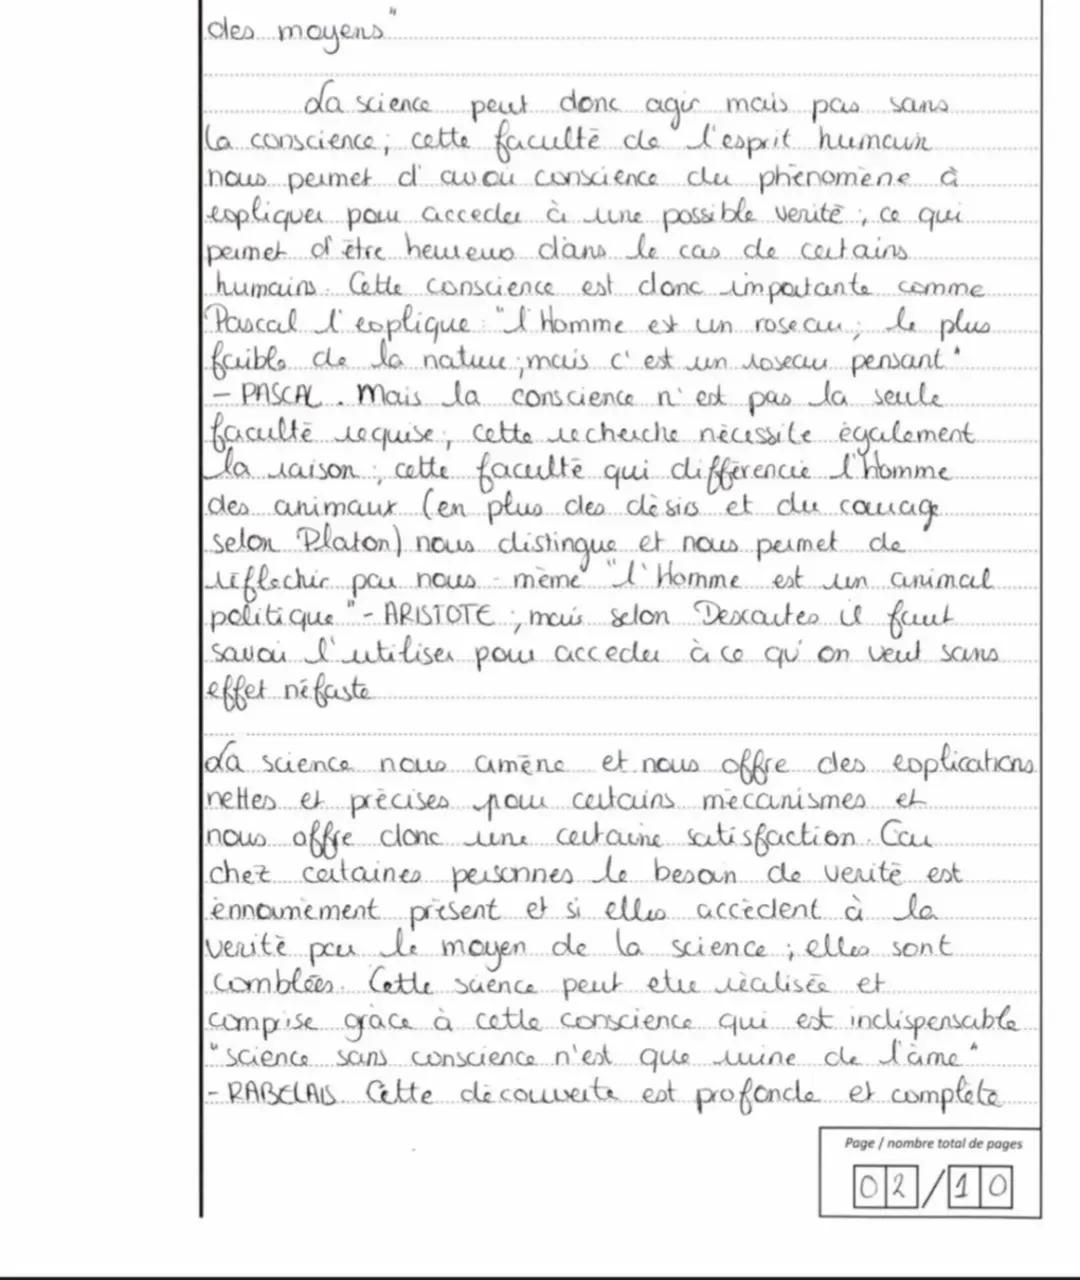 des moyens"
La science peut donc agir mais pas sans
la conscience ; cette faculté de l'esprit humain
nous permet d'avoir conscience du phénomène à
expliquer pour acceder à une possible verité ; ce qui
permet d'être heureux dans le cas de certains
humains. Cette conscience est donc importante comme
Pascal l'explique "l'Homme est un roseau ; le plus
faible de la nature ; mais c'est un roseau pensant"
- PASCAL. Mais la conscience n'est pas la seule
faculté requise ; cette recherche nécessite également
la raison ; cette faculté qui différencie l'Homme
des animaux (en plus des désirs et du courage
selon Platon) nous distingue et nous permet de
réflechir par nous-même "l'Homme est un animal
politique" - ARISTOTE ; mais selon Descartes il faut
savoir l'utiliser pour acceder à ce qu'on veut sans
effet néfaste
La science nous amène et nous offre des explications
nettes et précises pour certains mécanismes et
nous offre donc une certaine satisfaction. Car
chez certaines personnes le besoin de verité est
énnormément présent et si elles accèdent à la
verité par le moyen de la science ; elles sont
comblées. Cette science peut etre réalisée et
comprise grâce à cette conscience qui est indispensable
"science sans conscience n'est que ruine de l'âme"
- RABELAIS. Cette découverte est profonde et complète
Page / nombre total de pages
02/10